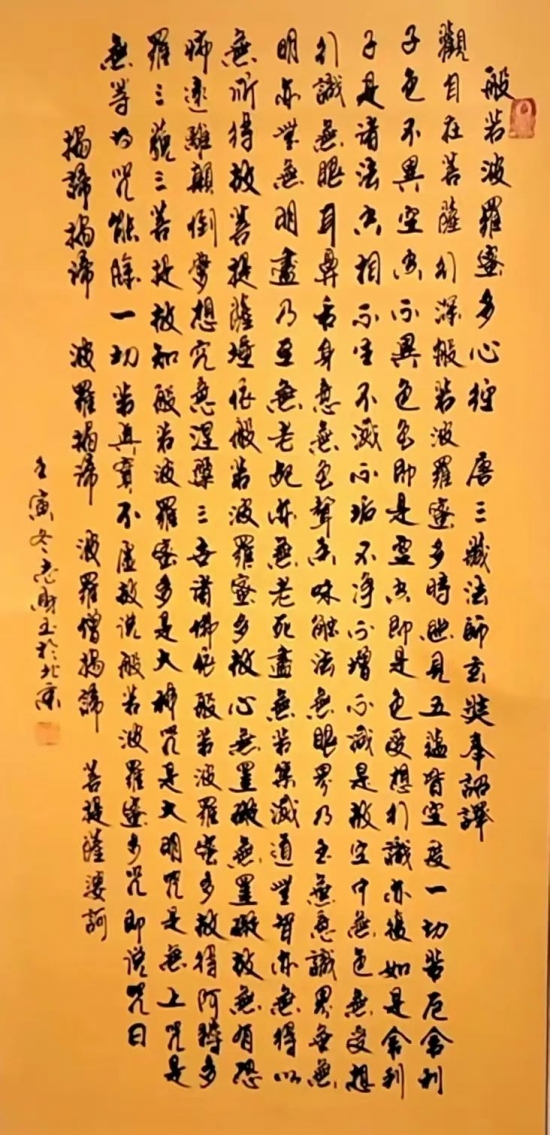 般若波羅蜜多心經 唐三藏法師玄奘奉詔譯
觀自在菩薩行深般若波羅蜜多時照見五蘊皆空度一切苦厄舍利
子色不異空空不異色色即是空空即是色受想行識亦復如是舍利
子是諸法空相不生不滅不垢不淨不增不減是故空中無色無受想
行識無眼耳鼻舌身意無色聲香味觸法無眼界乃至無意識界無無
明亦無無明盡乃至無老死亦無老死盡無苦集滅道無智亦無得以
無所得故菩提薩埵依般若波羅蜜多故心無罣礙無罣礙故無有恐
怖遠離顛倒夢想究竟涅槃三世諸佛依般若波羅蜜多故得阿耨多
羅三藐三菩提故知般若波羅蜜多是大神咒是大明咒是無上咒是
無等等咒能除一切苦真實不虛故說般若波羅蜜多咒即說咒曰
揭諦揭諦 波羅揭諦 波羅僧揭諦 菩提薩婆訶
壬寅冬 於北京